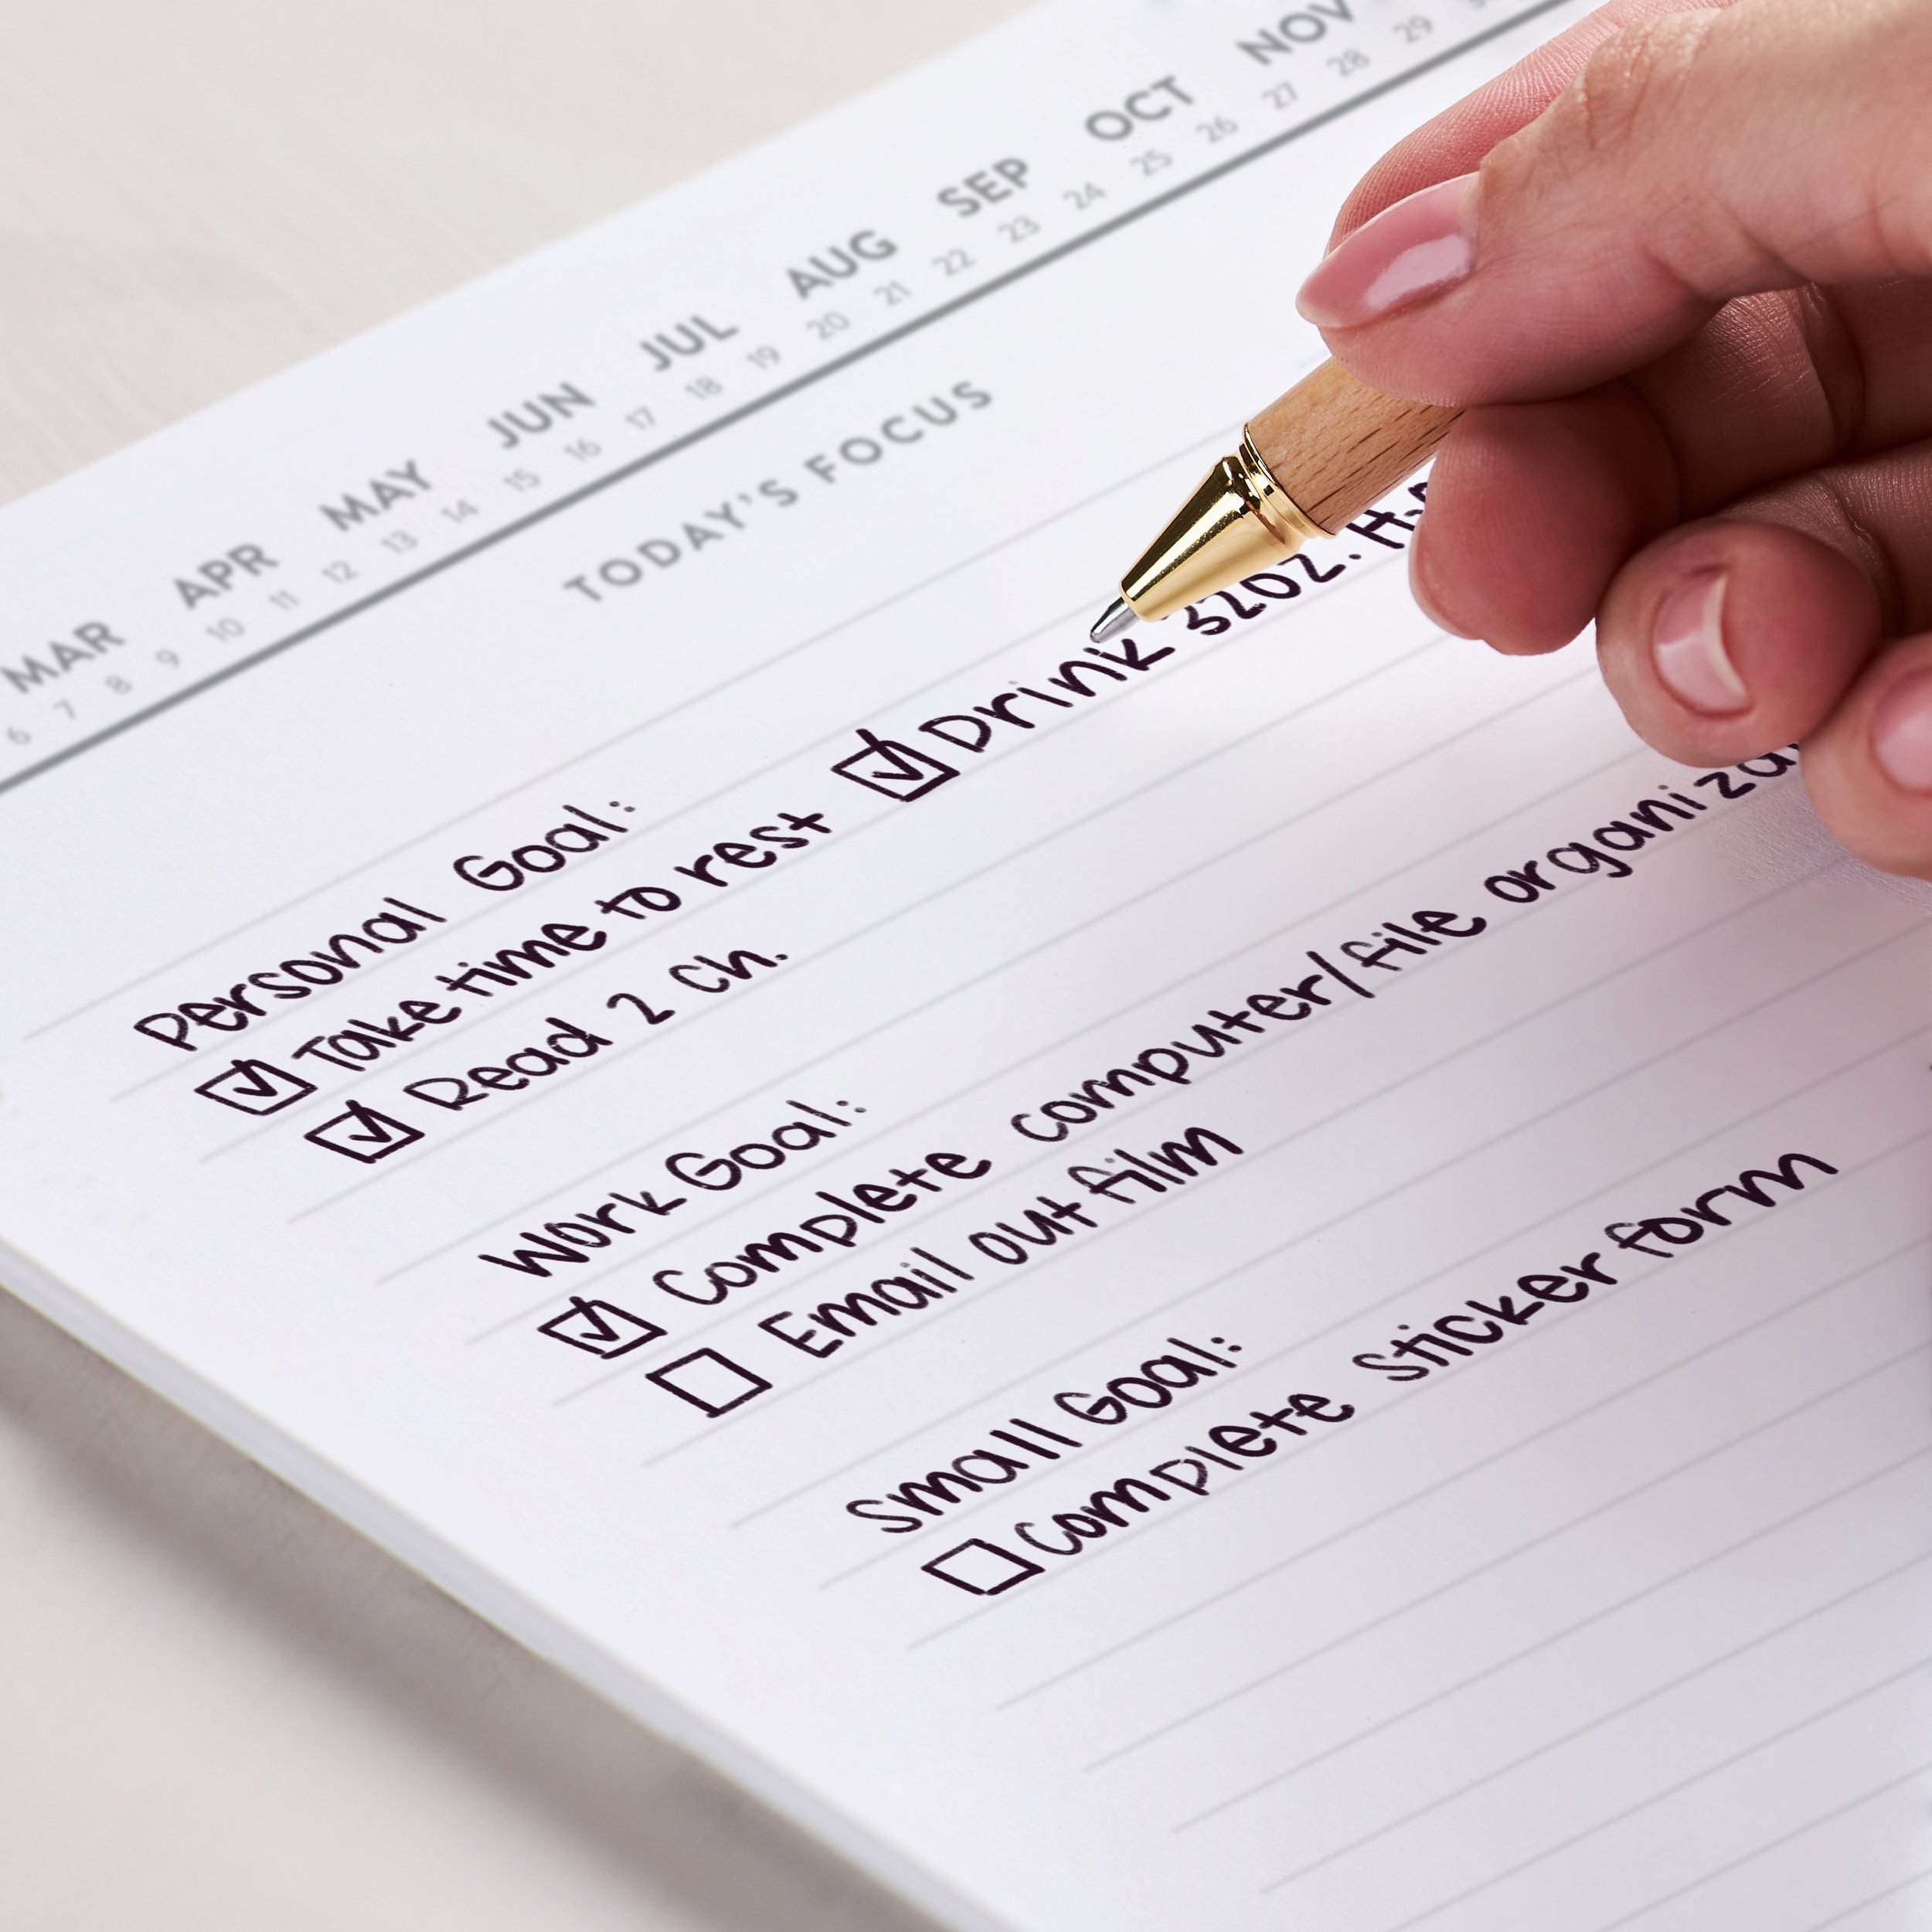 MAR APR MAY JUN JUL AUG SEP OCT NOV
6 7 8 9 10 11 12 13 14 15 16 17 18 19 20 21 22 23 24 25 26 27 28 29
TODAY'S FOCUS
Personal Goal:
Take time to rest Drink 32oz.
Read 2 Ch.
Work Goal:
Complete computer/file
Email out film
Small Goal:
Complete Sticker form